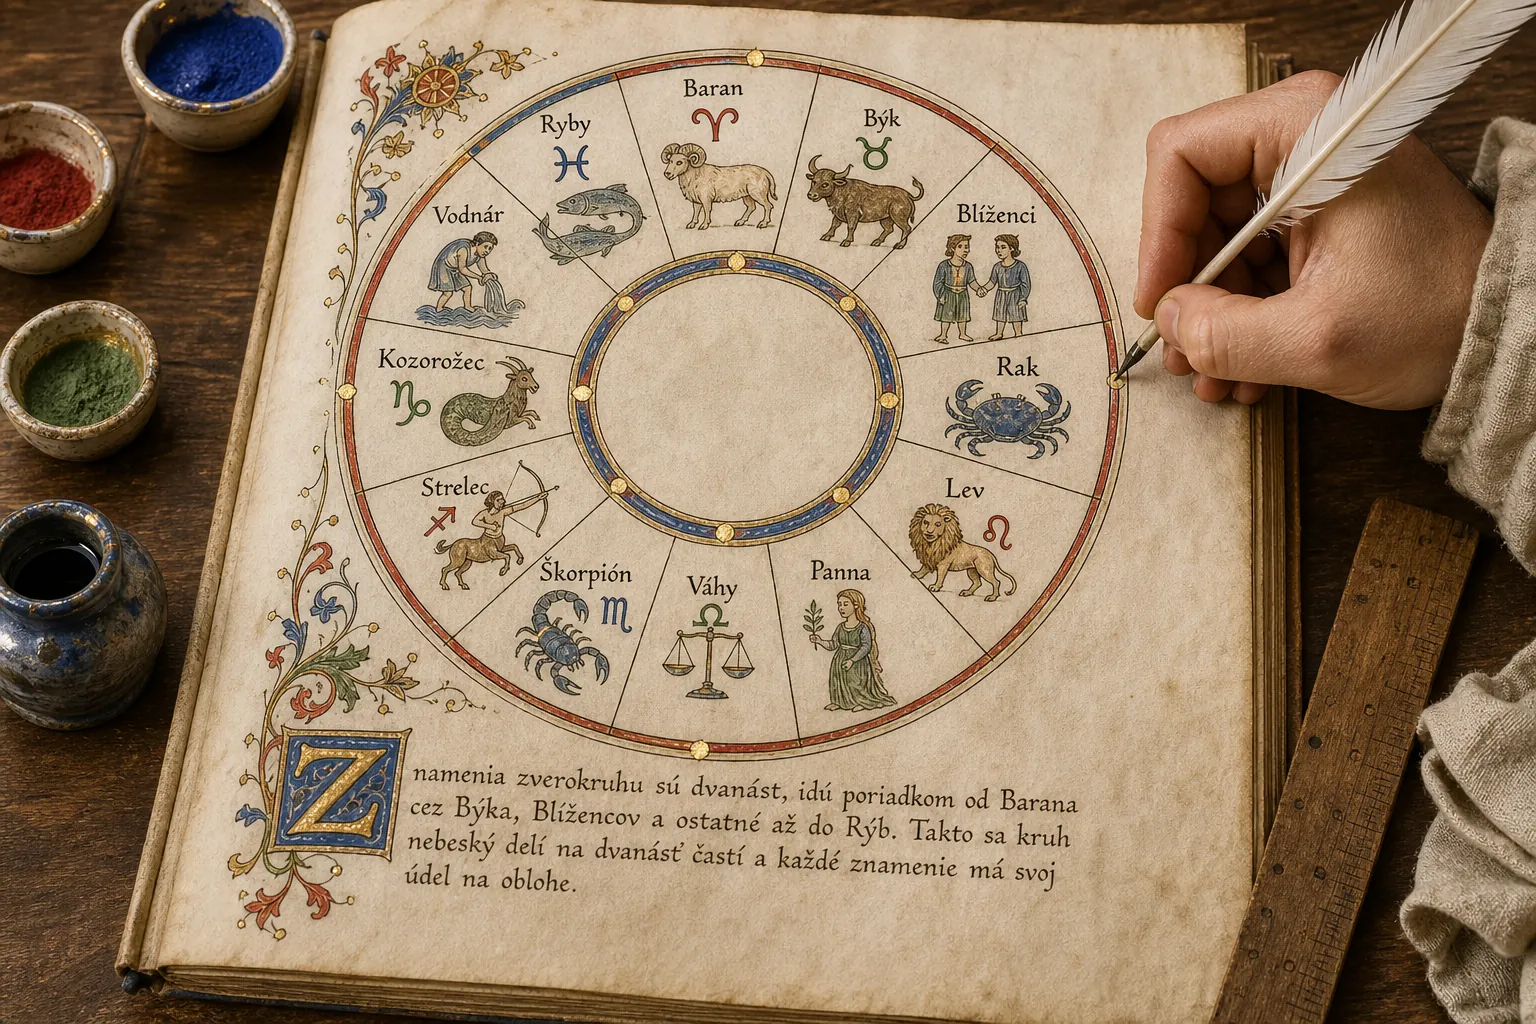 Baran
Býk
Blíženci
Rak
Lev
Panna
Váhy
Škorpión
Strelec
Kozorožec
Vodnár
Ryby
Znamenia zverokruhu sú dvanást, idú poriadkom od Barana
cez Býka, Blížencov a ostatné až do Rýb. Takto sa kruh
nebeský delí na dvanásť častí a každé znamenie má svoj
údel na oblohe.